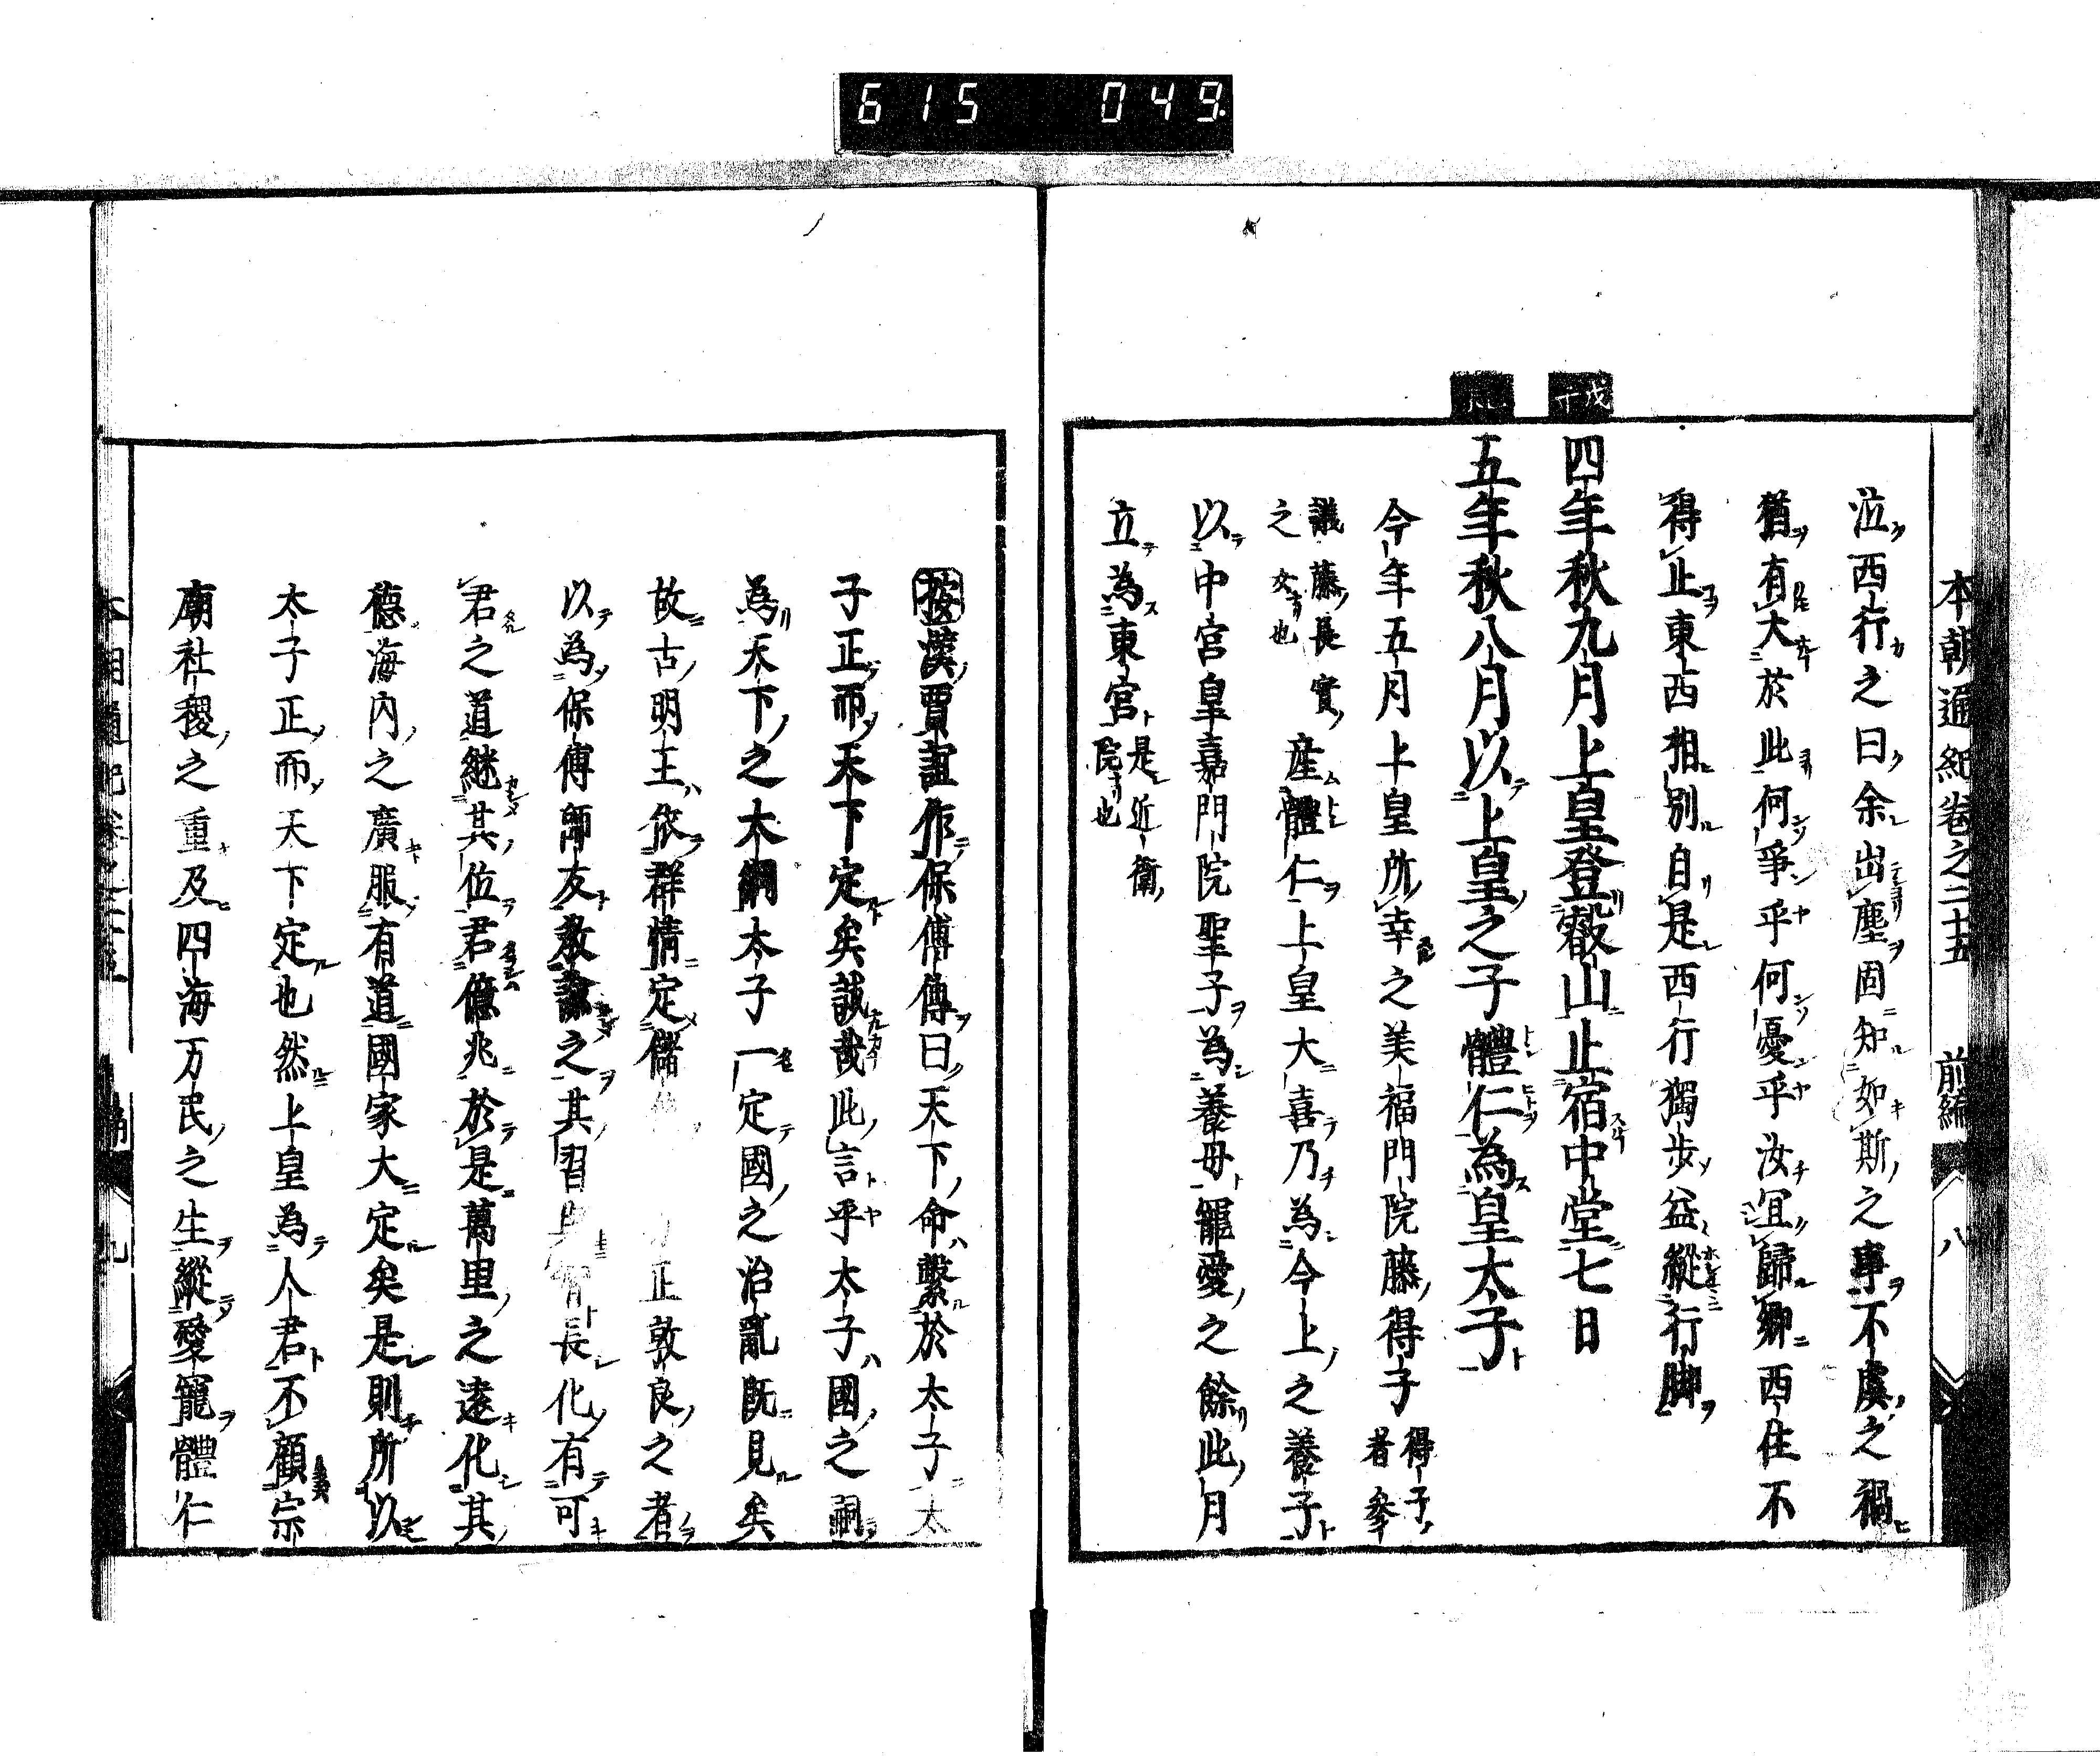 615 049
本朝通紀卷之二十五 前編 八
泣西行之曰余出塵固知如斯之事不虞之禍
猶有大於此何爭乎何憂乎汝宜歸鄉西住不
得止東西相別自是西行獨步益縱行脚
戊午
四年秋九月上皇登叡山止宿中堂七日
五年秋八月以上皇之子體仁為皇太子
今年五月上皇所幸之美福門院藤得子得子者參
議藤長實之女也產體仁上皇大喜乃為今上之養子
以中宮皇嘉門院聖子為養母寵愛之餘此月
立為東宮是近衛院也
按漢賈誼作保傅傳曰天下命繫於太子太
子正而天下定矣誠哉此言乎太子國之嗣
為天下之大綱太子一定國之治亂既見矣
故古明王依群情定儲正敦良之者
以為保傅師友教諭之其習與智長化有可
君之道継其位君億兆於是萬里之遠化其
德海內之廣服有道國家大定矣是則所以
太子正而天下定也然上皇為人君不顧宗
廟社稷之重及四海万民之生縱愛寵體仁
本朝通紀卷之二十五 前編 九